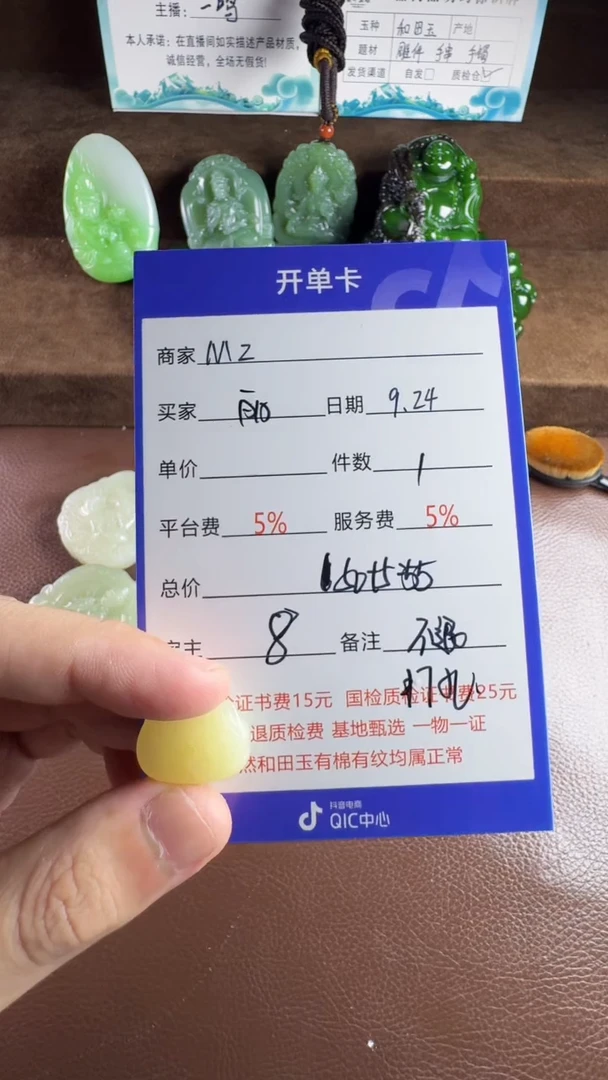 主播：一鸣
本人承诺：在直播间如实描述产品材质，
诚信经营，全场无假货！
玉种 和田玉 产地
题材 雕件 手串 手镯
发货渠道 自发 质检仓
开单卡
商家 M2
买家 日期 9.24
单价 件数 1
平台费 5% 服务费 5%
总价
主 8 备注 不退
打孔
证书费15元 国检质检证书费25元
退质检费 基地甄选 一物一证
然和田玉有棉有纹均属正常
抖音电商
QIC中心